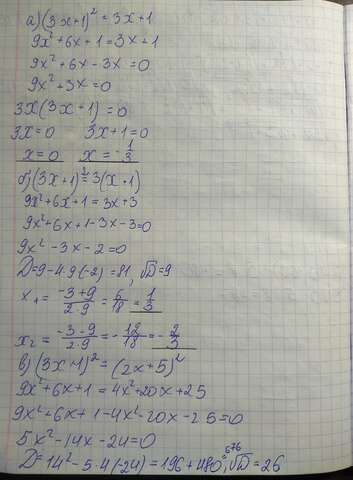 а) (3x+1)² = 3x+1
9x²+6x+1=3x+1
9x²+6x-3x=0
9x²+3x=0
3x(3x+1)=0
3x=0 3x+1=0
x=0 x=-1/3
б) (3x+1)²=3(x+1)
9x²+6x+1=3x+3
9x²+6x+1-3x-3=0
9x²-3x-2=0
D=9-4·9·(-2)=81, √D=9
x₁=(-3+9)/(2·9)=6/18=1/3
x₂=(-3-9)/(2·9)=-12/18=-2/3
в) (3x+1)²=(2x+5)²
9x²+6x+1=4x²+20x+25
9x²+6x+1-4x²-20x-25=0
5x²-14x-24=0
D=14²-5·4(-24)=196+480=676, √D=26